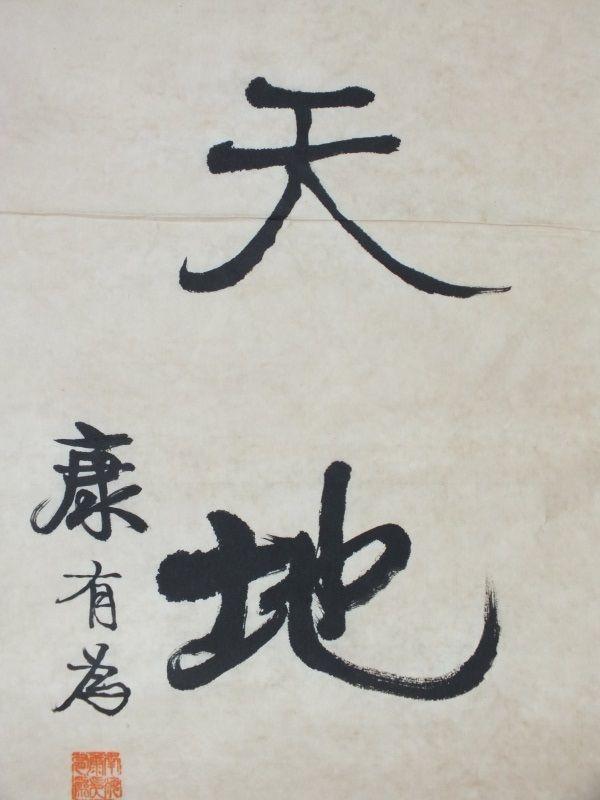 天地
康有為